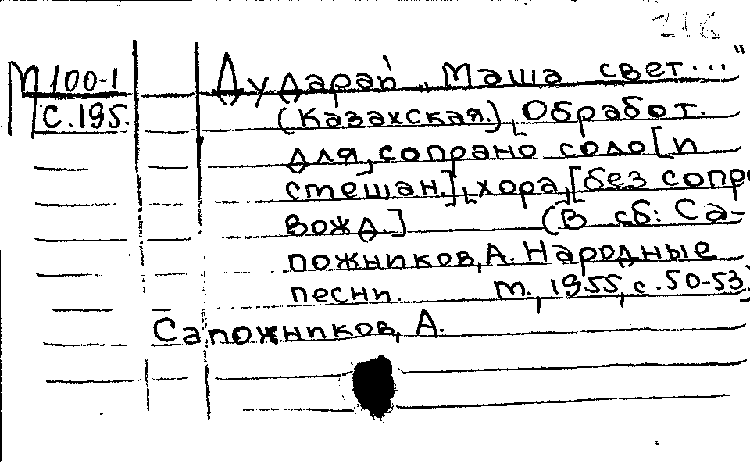 216
М 100-1 Дударай „Маша свет..."
С.195. (Казахская.), [Обработ.
для, сопрано соло [и
смешан.], [хора, [без сопро
вожд.] (В сб: Са-
пожников, А. Народные
песни. М., 1955, с. 50-53.
Сапожников, А.